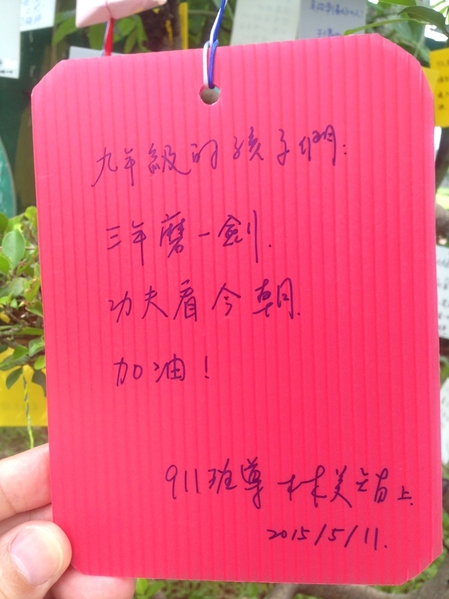 九年級的孩子們:
三年磨一劍.
功夫看今朝.
加油!
911班導 林美 上.
2015/5/11.